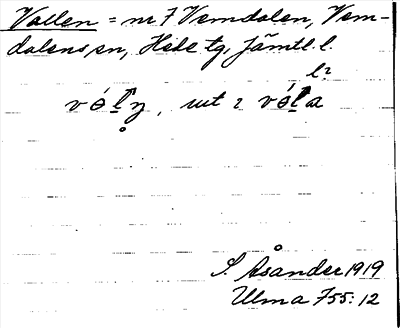 Vallen = nr 7 Vemdalen, Vem-
dalens sn, Hede tg, Jämtl. l.
l?
S. Åsander 1919
Ulma 755:12